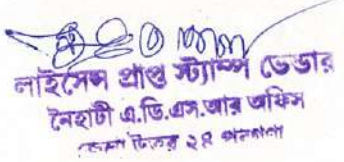 লাইসেন্স প্রাপ্ত স্ট্যাম্প ভেন্ডার
নৈহাটী এ.ডি.এস.আর অফিস
উত্তর ২৪ পরগণা